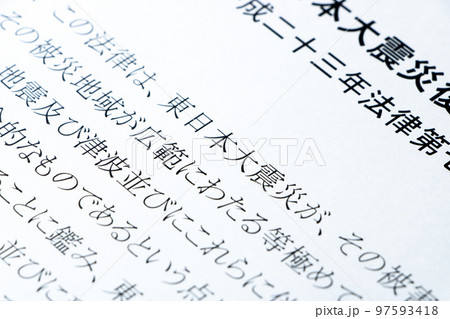 本大震災復
成二十三年法律第
この法律は、東日本大震災が、その被害
その被災地域が広範にわたる等極めて
地震及び津波並びにこれらに伴
的なものであるという点
ることに鑑み、東
並びに
PIXTA
97593418